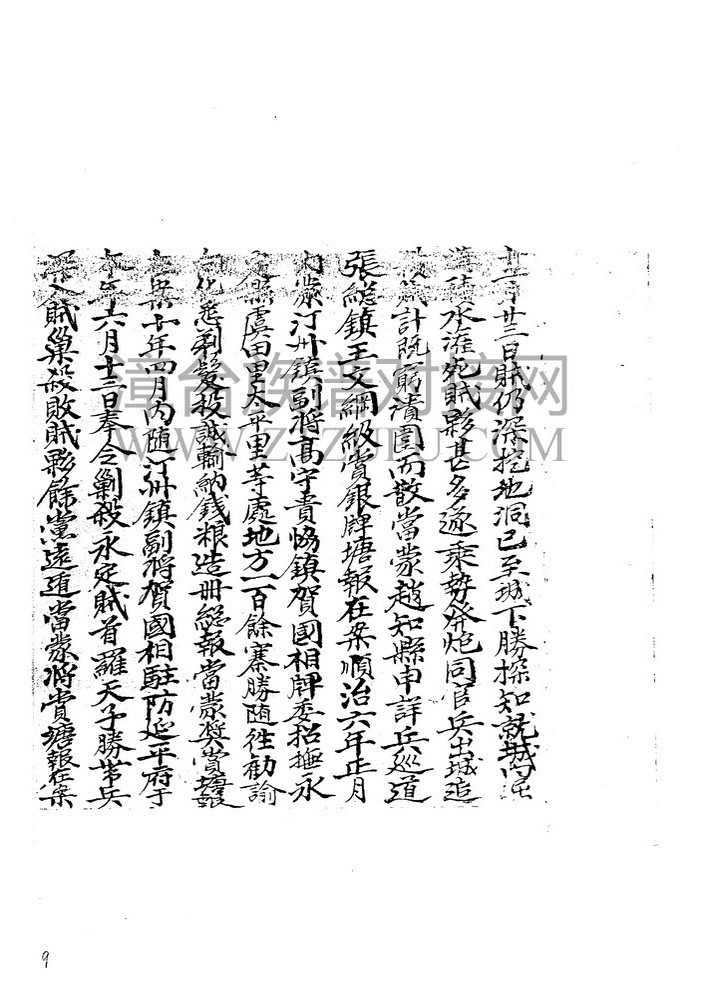 十一月廿三日賊仍深挖地洞已至城下勝探知就城內
積水灌死賊夥甚多逐乘勢發炮同官兵出城追
計既窮潰圍而散當蒙趙知縣申詳兵巡道
張總鎮王文綱級賞銀牌塘報在案順治六年正月
內蒙汀州鎮副將高守貴協鎮賀國相牌委招撫永
縣虞田里太平里等處地方一百餘寨勝随徃勸諭
化悉剃髮投誠輸納錢粮造冊總報當蒙獎賞塘報
案七年四月內随汀州鎮副將賀國相駐防延平府于
年六月十三日奉令剿殺永定賊首羅天子勝帶兵
入賊巢殺敗賊夥餘黨遠遁當蒙將賞塘報在案
漳台族谱对接网
WWW.ZTZUPU.COM
9